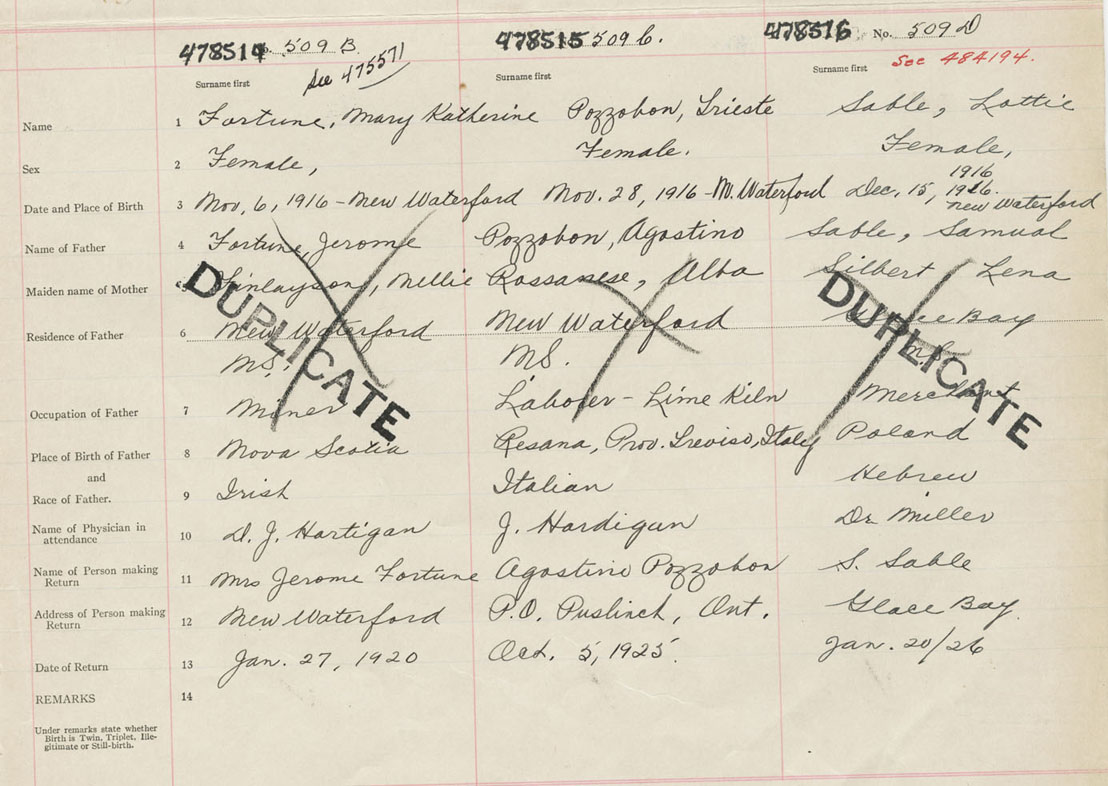 478514 509 B.
See 475571
478515 509 C.
478516 No. 509 D
See 484194.
Surname first Surname first Surname first
Name 1 Fortune, Mary Katherine Pozzobon, Trieste Sable, Lottie
Sex 2 Female, Female. Female,
1916
Date and Place of Birth 3 Nov, 6, 1916 - New Waterford Nov. 28, 1916 - N. Waterford Dec. 15, 1926.
New Waterford
Name of Father 4 Fortune, Jerome Pozzobon, Agostino Sable, Samual
Maiden name of Mother 5 Finlayson, Nellie Rossanese, Alba Silbert Lena
Residence of Father 6 New Waterford New Waterford Glace Bay
NS. NS. N.S.
DUPLICATE DUPLICATE
Occupation of Father 7 Miner Laborer - Lime Kiln Merchant
Place of Birth of Father 8 Nova Scotia Resana, Prov. Treviso, Italy Poland
and
Race of Father. 9 Irish Italian Hebrew
Name of Physician in
attendance 10 D. J. Hartigan J. Hardigan Dr Miller
Name of Person making
Return 11 Mrs Jerome Fortune Agostino Pozzobon S. Sable
Address of Person making
Return 12 New Waterford P.O. Puslinch, Ont. Glace Bay.
Date of Return 13 Jan. 27, 1920 Oct. 5, 1925. Jan. 20/26
REMARKS 14
Under remarks state whether
Birth is Twin, Triplet, Ille-
gitimate or Still-birth.